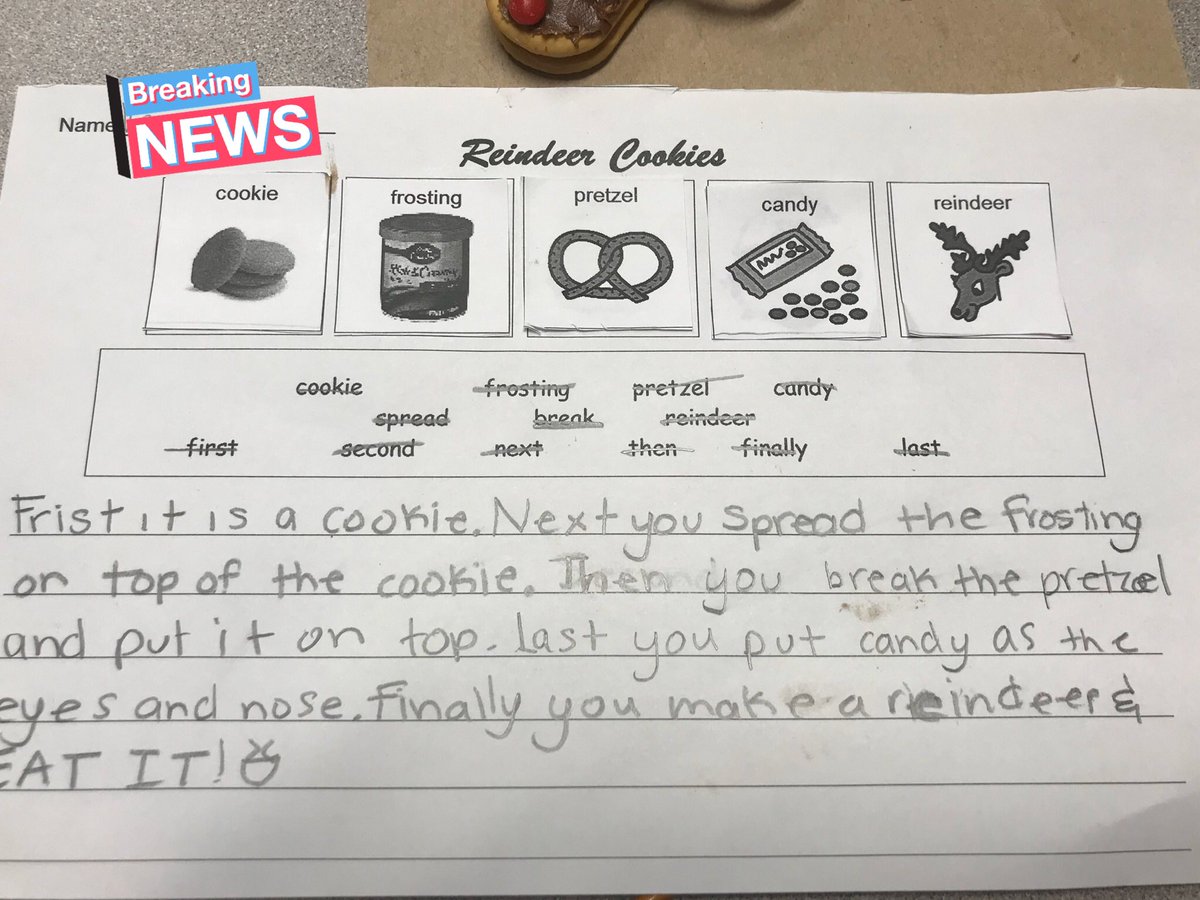 Breaking
NEWS
Name
Reindeer Cookies
cookie frosting pretzel candy reindeer
cookie frosting pretzel candy
spread break reindeer
first second next then finally last
Frist it is a cookie. Next you spread the frosting
on top of the cookie. Then you break the pretzel
and put it on top. Last you put candy as the
eyes and nose. Finally you make a reindeer &
EAT IT!